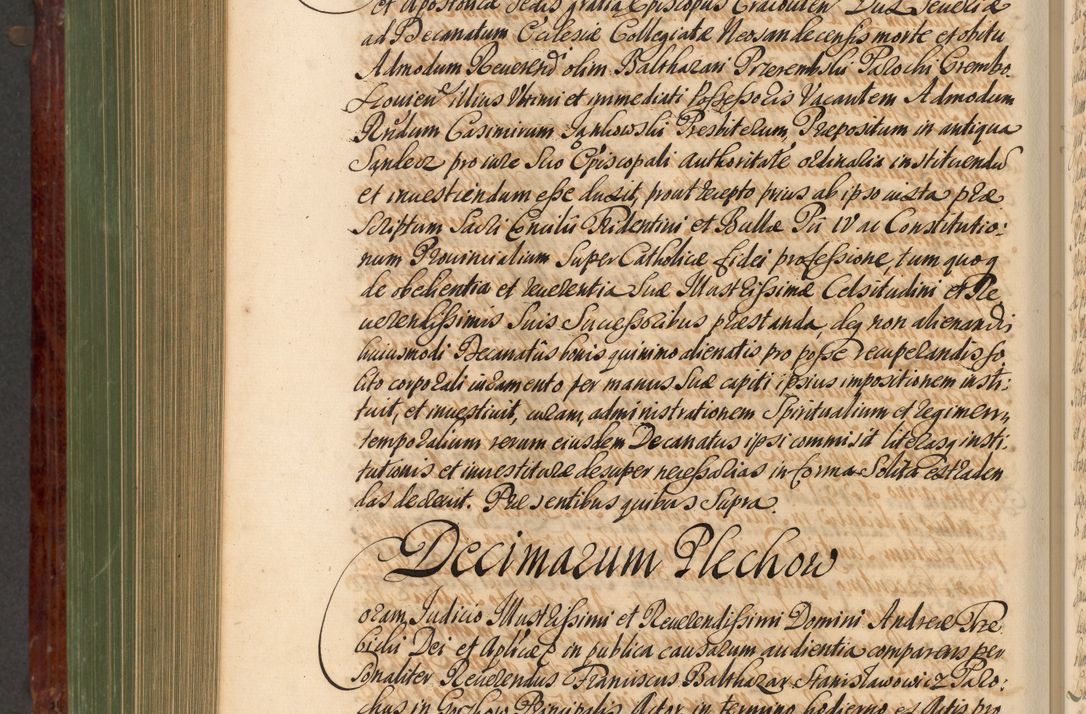 et Apostolicæ Sedis gratia Episcopus Cracovien Dux Severiæ
ad Decanatum Ecclesiæ Collegiatæ Neosandecensis morte et obitu
Admodum Reverend olim Balthazari Przerembski Parochi Crembo
flovien illius Ultimi et immediati Possessoris Vacantem Admodum
Rndum Casimirum Jankowski Presbiterum, Præpositum in antiqua
Sandecz pro iure Suo Episcopali authoritate ordinaria instituendu
et investiendum esse duxit, prout recepto prius ab ipso iuxta præ
scriptum Sacri Concilii Tridentini et Bullæ Pii IV ac Constitutio:
num Provincialium super Catholicæ fidei professione, tum quoq
de obedientia et reverentia Suæ Illustrissimæ Celsitudini et Re
verendissimis Suis Successoribus præstanda, deq non alienandis
huiusmodi Decanatus bonis quinimo alienatis pro posse recuperandis so
lito corporali iuramento per manus Suæ capiti ipsius impositionem insti:
tuit, et investivit, curam, administrationem Spiritualium et regimen
temporalium rerum eiusdem Decanatus ipsi commisit literasq insti:
tutionis et investituræ desuper necessarias in forma Solita extraden
das decrevit. Præsentibus quibus Supra.
Decimarum Plechow
oram Judicio Illustrissimi et Reverendissimi Domini Andreæ Trze
bicki Dei et Aplicæ in publica causarum audientia comparens per
sonaliter Reverendus Franciscus Balthazar Stanislawowicz Paro:
chus in Gorzkow Principalis Actor in termino hodierno ex Actis pro